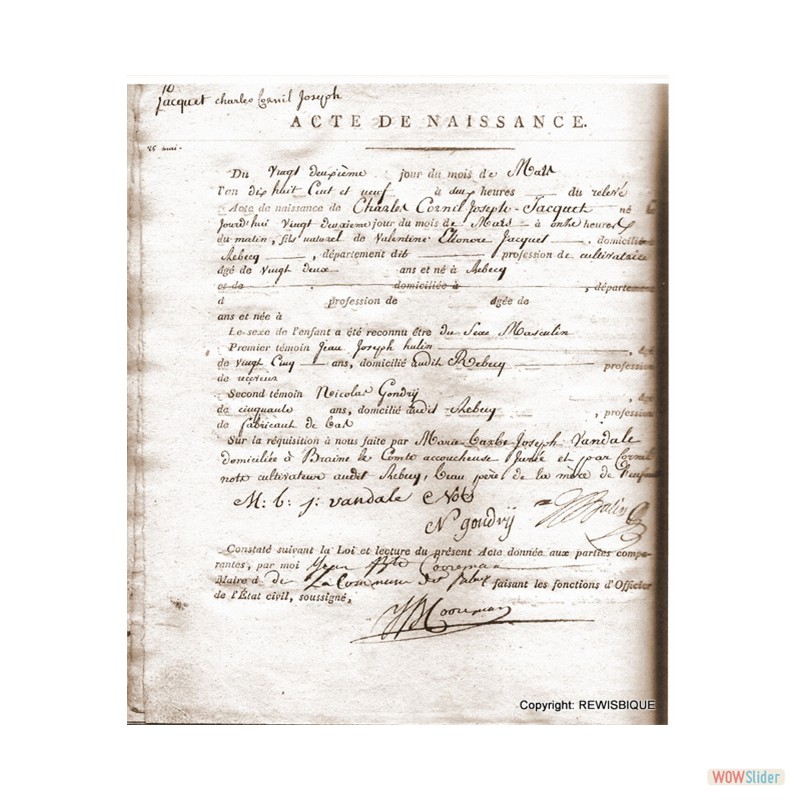 10
Jacquet charles Cornil Joseph
ACTE DE NAISSANCE.
Du Vingt deuxième jour du mois de Mars
l'an dix huit Cent et neuf à deux heures du relevé
Acte de naissance de Charles Cornil Joseph Jacquet né
jourd'hui Vingt deuxième jour du mois de Mars à onze heures
du matin, fils naturel de Valentine Eléonore Jacquet, domicilié
Rebecq, département dit, profession de cultivatrice
âgé de vingt deux ans et né à Rebecq
et de domicilié à, départeme
d profession de âgée de
ans et née à
Le sexe de l'enfant a été reconnu être du Sexe Masculin
Premier témoin Jean Joseph hulin, âgé
de Vingt Cinq ans, domicilié audit Rebecq profession
de
Second témoin Nicolas Gondry, âg
de cinquante ans, domicilié audit Rebecq, profession
de fabricant de bas
Sur la réquisition à nous faite par Marie Barbe Joseph Vandale
domiciliée à Braine le Comte accoucheuse Jurée et par Cornil
note cultivateur audit Rebecq, beau père de la mère de l'enfant
M: b: j: vandale Note
N gondrÿ
Constaté suivant la Loi et lecture du présent Acte donnée aux parties compa-
rantes, par moi Jean Bte Cooreman
Maire d de La Commune de faisant les fonctions d'Officier
de l'État civil, soussigné,
JBCooreman
Copyright: REWISBIQUE
WOWSlider